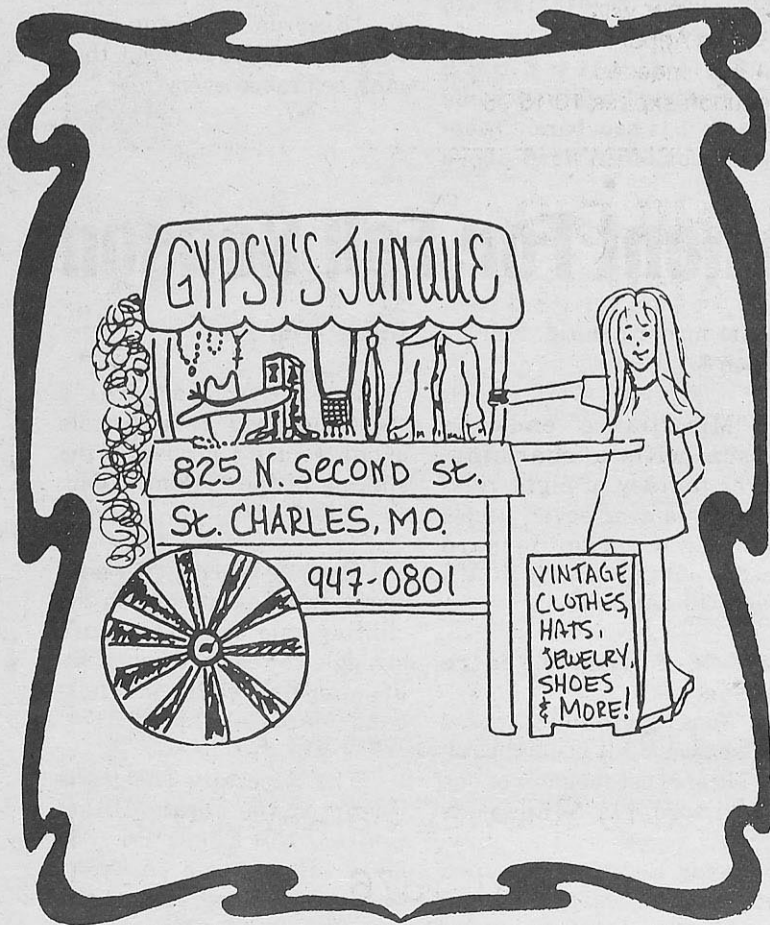 GYPSY'S JUNQUE
825 N. SECOND St.
St. CHARLES, MO.
947-0801
VINTAGE
CLOTHES,
HATS,
JEWELRY,
SHOES
& MORE!